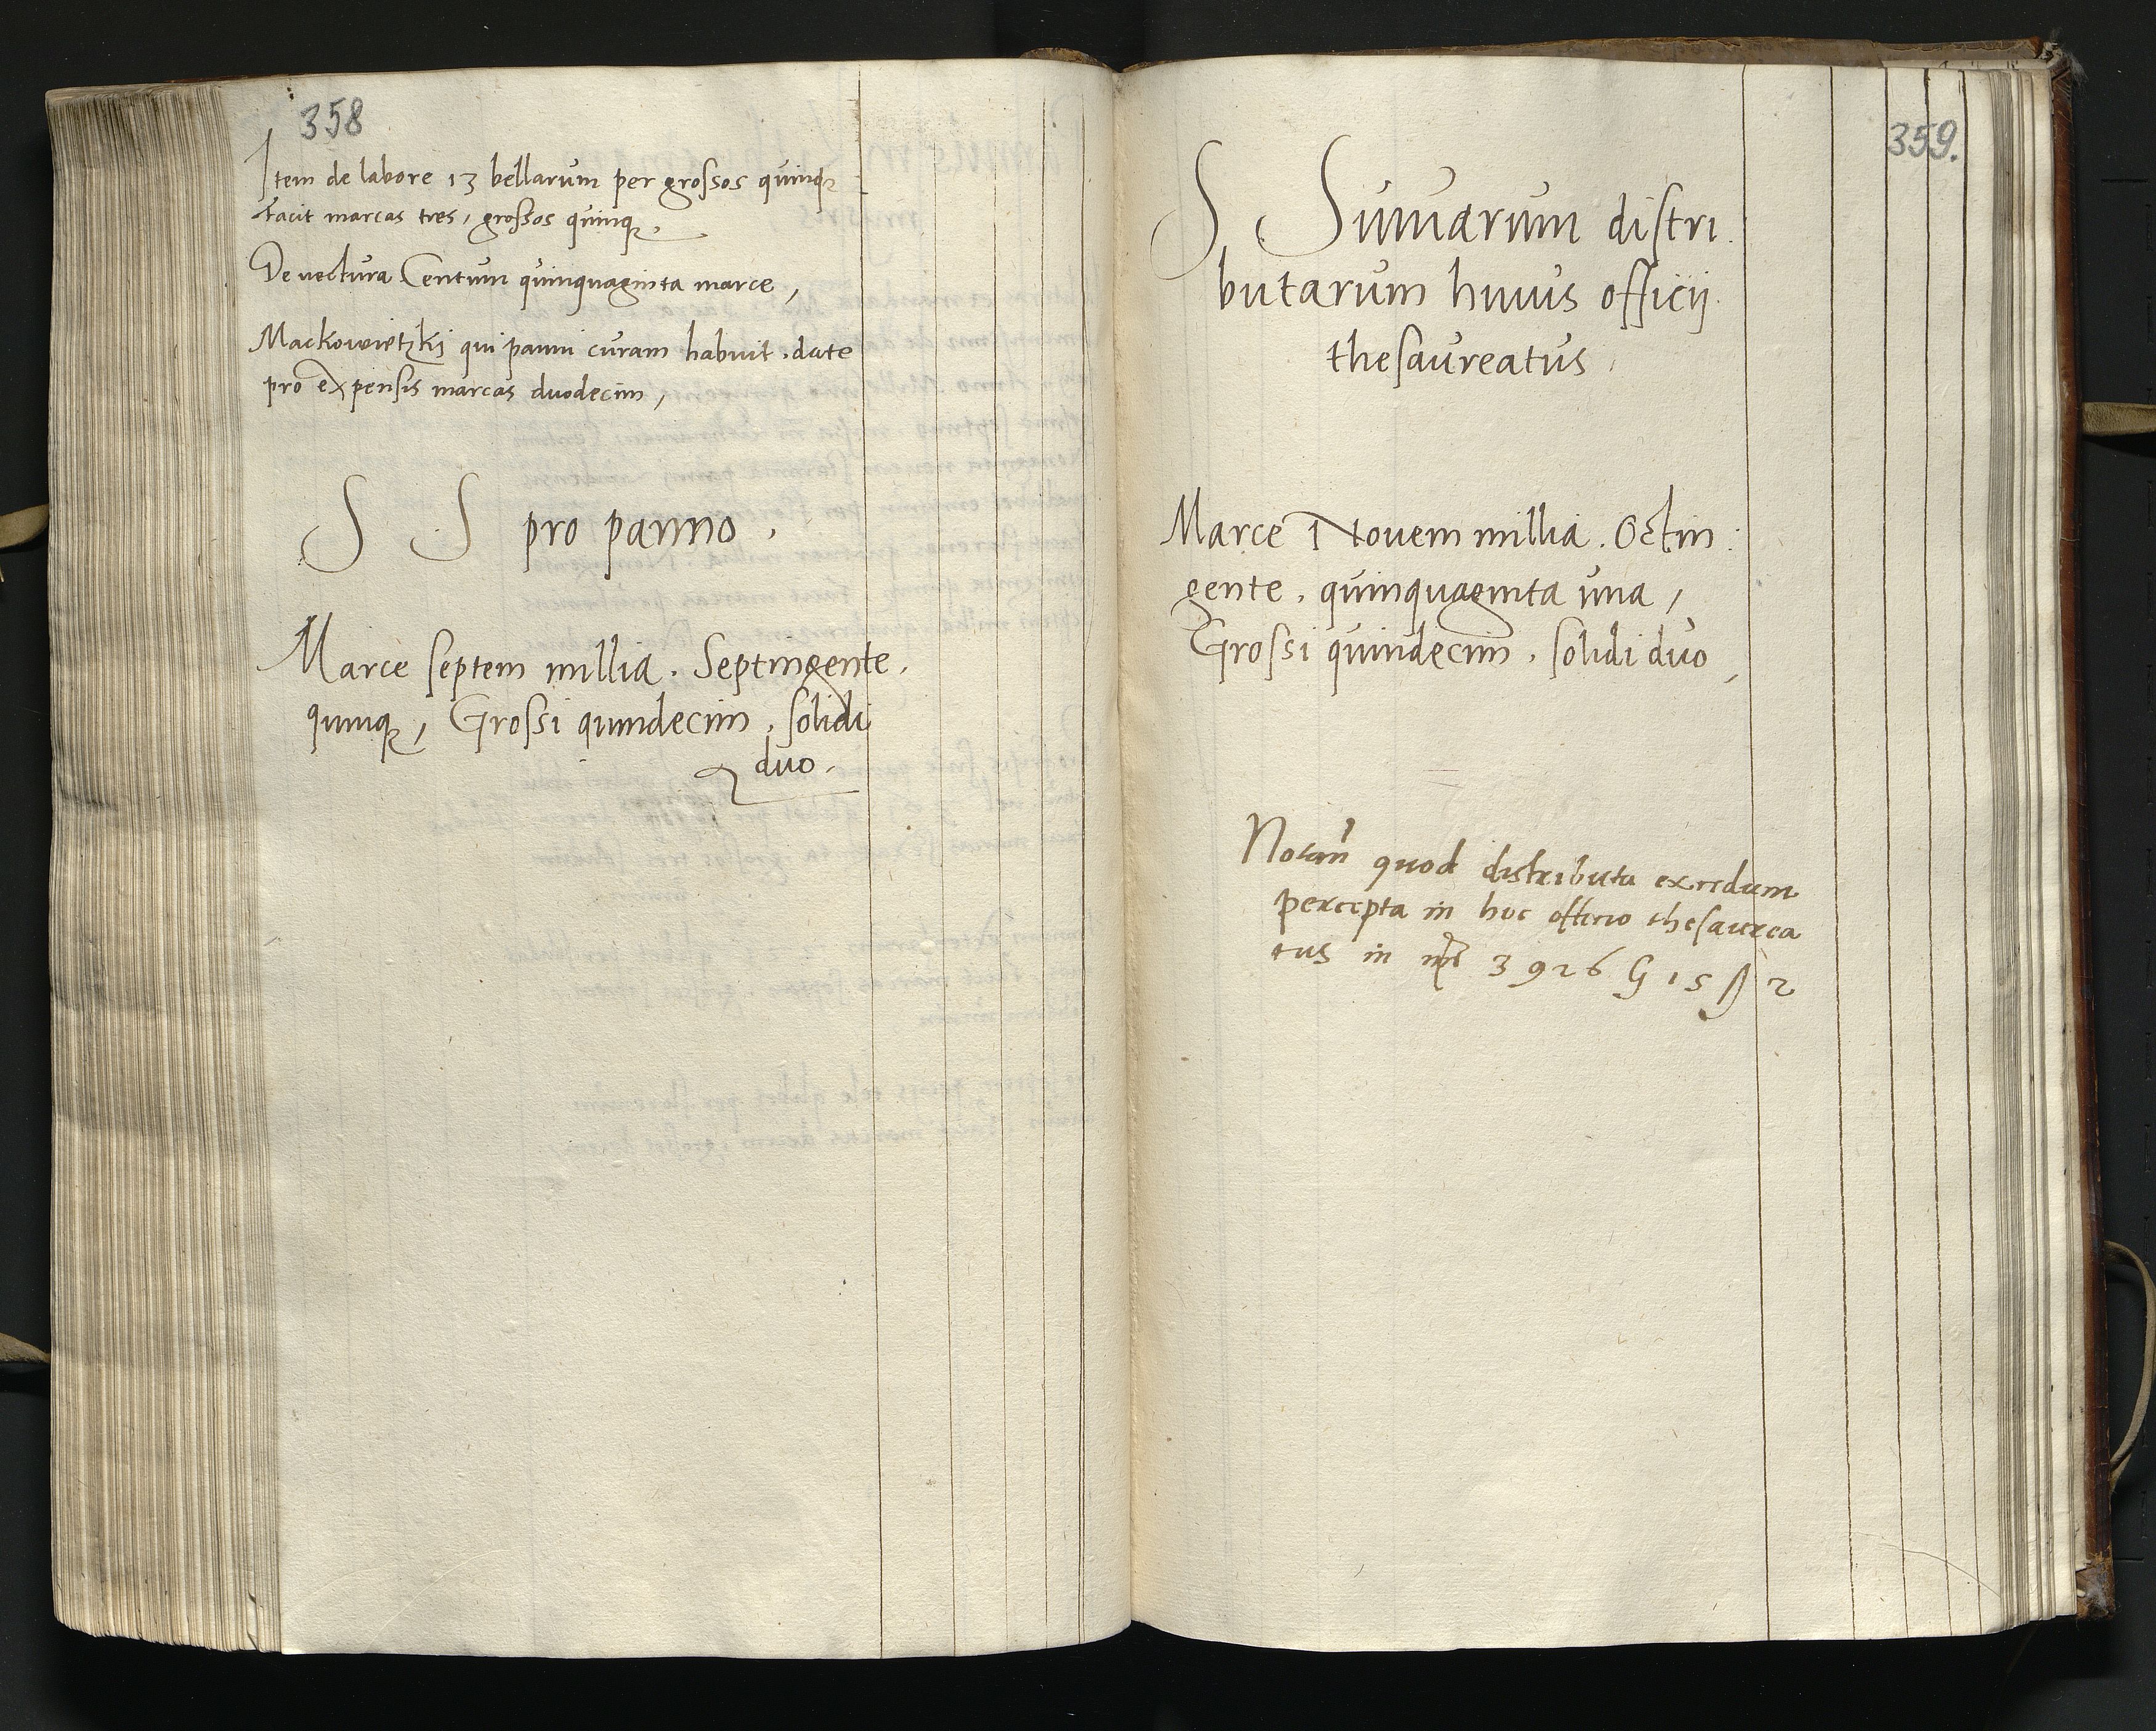 358
Item de labore 13 bellarum per grossos quinqz
Facit marcas tres, grossos quinqz.
De vectura Centum quinquaginta marce,
Mackowietzkj qui panni curam habuit. date
pro expensis marcas duodecim,
S S pro panno.
Marce septem millia. Septingente.
quinqz, Grossi quindecim, solidi
duo.
359.
S Sumarum distri
butarum huius officij
thesaureatus
Marce Novem millia. Octin:
gente. quinquaginta una,
Grossi quindecim, solidi duo,
quod distributa excedunt
percepta in hoc officio thesaurea
tus in mr 3926 G 15 ß 2